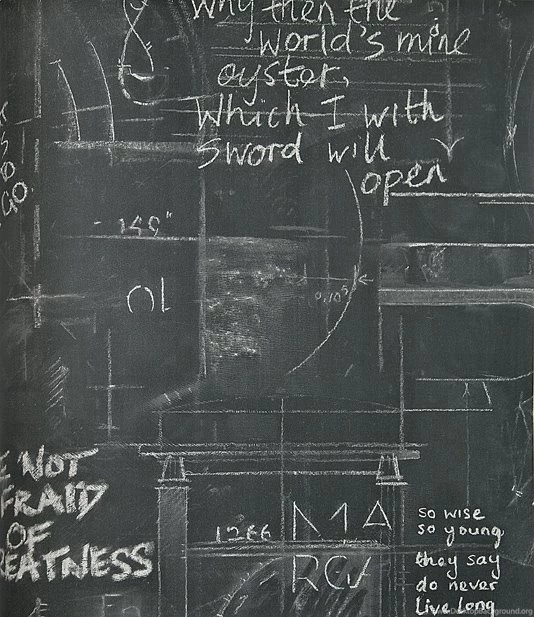 Why then the
world's mine
oyster,
Which I with
sword will
open
GO.
149"
0.105
E NOT
FRAID
OF
REATNESS
1266
so wise
so young
they say
do never
live long
desktopbackground.org